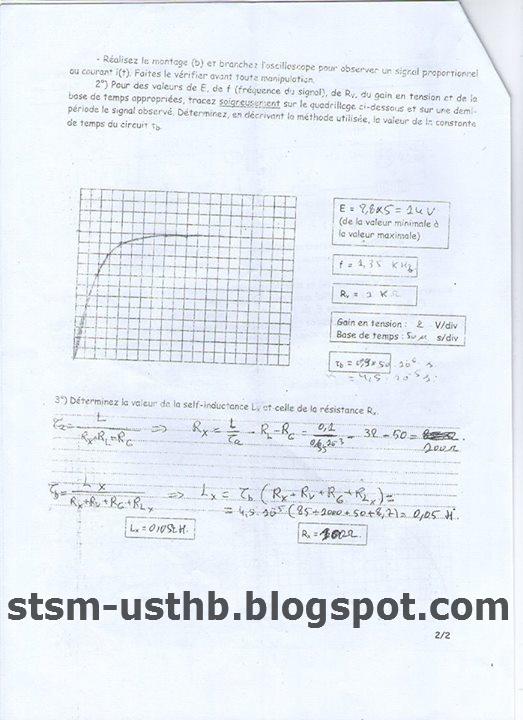 - Réalisez le montage (b) et branchez l'oscilloscope pour observer un signal proportionnel
au courant i(t). Faites le vérifier avant toute manipulation.
2°) Pour des valeurs de E, de f (fréquence du signal), de Rv, du gain en tension et de la
base de temps appropriées, tracez soigneusement sur le quadrillage ci-dessous et sur une demi-
période le signal observé. Déterminez, en décrivant la méthode utilisée, la valeur de la constante
de temps du circuit τb.
E = 2,8 x 5 = 14 V
(de la valeur minimale à
la valeur maximale)
f = 1,35 KHz
Rv = 1 KΩ
Gain en tension : 2 V/div
Base de temps : 50 μ s/div
τb = 0,9 x 50 . 10⁻⁶ s.
= 4,5 . 10⁻⁵ s.
3°) Déterminez la valeur de la self-inductance Lx et celle de la résistance Rx.
τa = L / (Rx+RL+RG) => Rx = L/τa - RL - RG = 0,1 / - 32 - 50 =
200Ω
τb = Lx / (Rx+Rv+RG+RLx) => Lx = τb (Rx + Rv + RG + RLx) =
= 4,5 . 10⁻⁵ (85 + 1000 + 50 + 8,7) = 0,05 H.
Lx = H. Rx = Ω.
stsm-usthb.blogspot.com
2/2